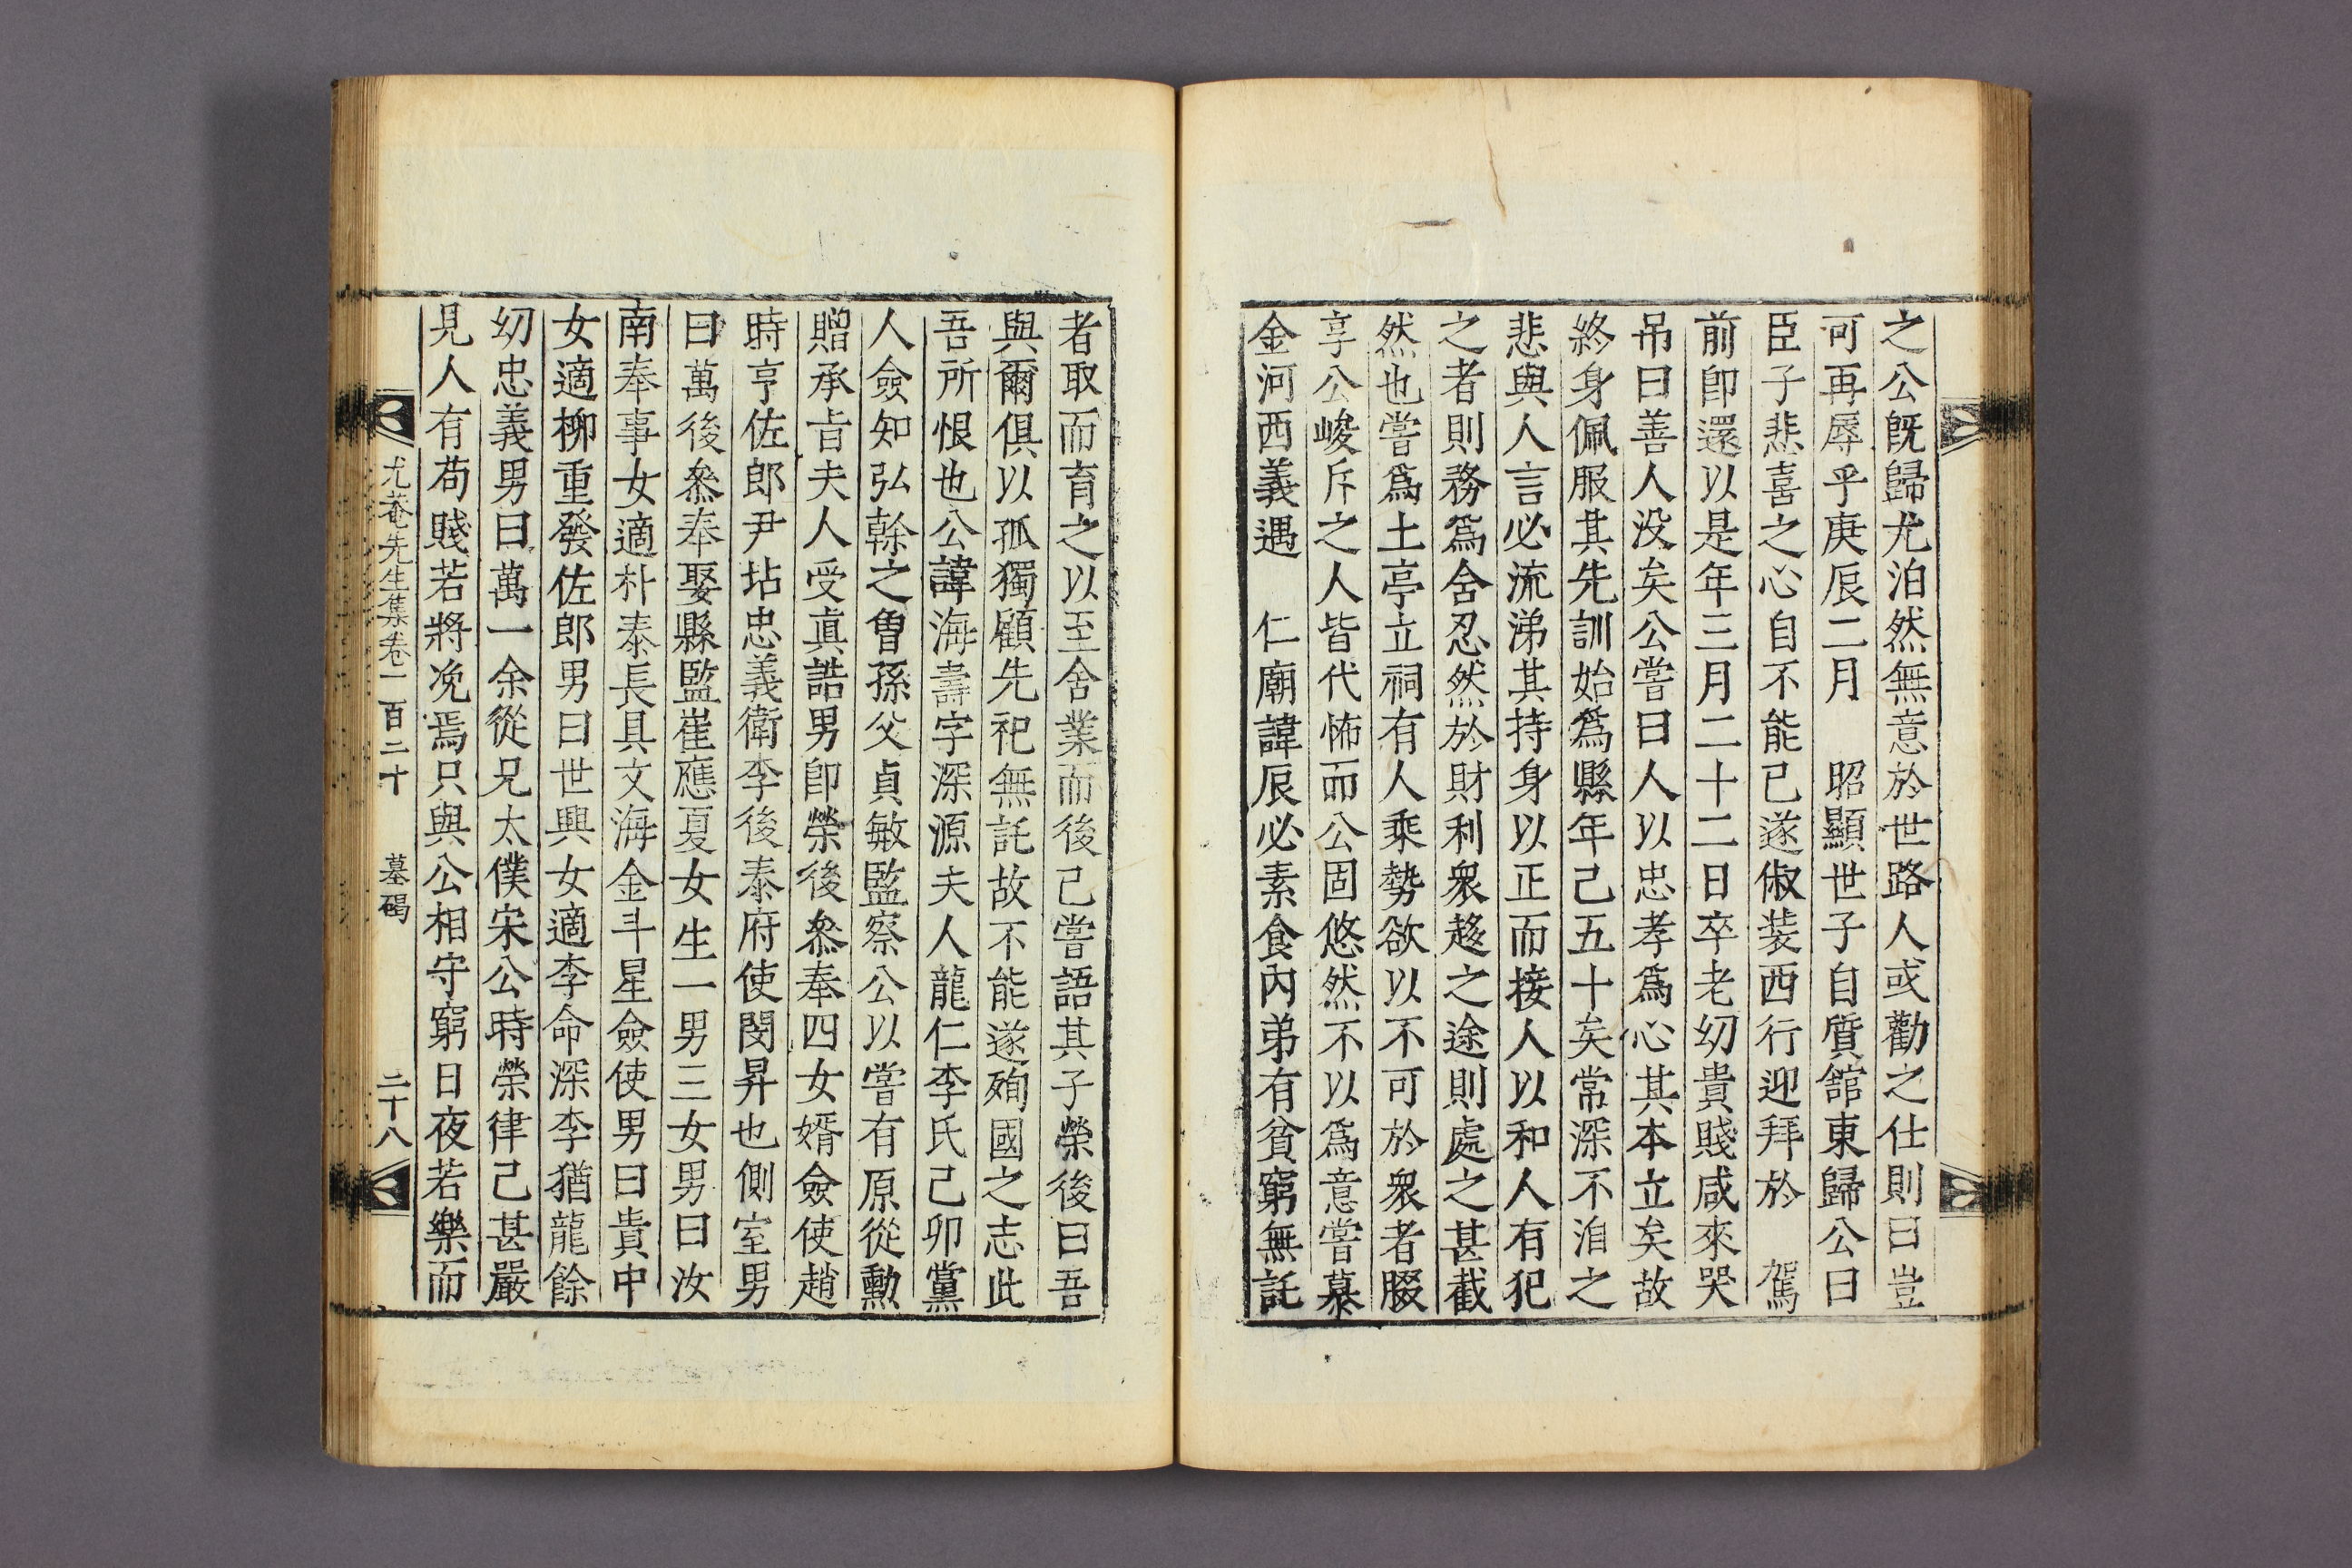 之公旣歸尤泊然無意於世路人或勸之仕則曰豈
可再辱乎庚辰二月　昭顯世子自質館東歸公曰
臣子悲喜之心自不能已遂俶裝西行迎拜於　駕
前卽還以是年三月二十二日卒老幼貴賤咸來哭
吊曰善人沒矣公嘗曰人以忠孝爲心其本立矣故
終身佩服其先訓始爲縣年已五十矣常深不洎之
悲與人言必流涕其持身以正而接人以和人有犯
之者則務爲舍忍然於財利衆趍之途則處之甚截
然也嘗爲土亭立祠有人乘勢欲以不可於衆者腏
享公峻斥之人皆代怖而公固悠然不以爲意嘗慕
金河西義遇　仁廟諱辰必素食內弟有貧窮無託
者取而育之以至舍業而後已嘗語其子榮後曰吾
與爾俱以孤獨顧先祀無託故不能遂殉國之志此
吾所恨也公諱海壽字深源夫人龍仁李氏己卯黨
人僉知弘榦之曾孫父貞敏監察公以嘗有原從勳
贈承旨夫人受眞誥男卽榮後叅奉四女婿僉使趙
時亨佐郎尹坫忠義衛李後泰府使閔昇也側室男
曰萬後叅奉娶縣監崔應夏女生一男三女男曰汝
南奉事女適朴泰長具文海金斗星僉使男曰貴中
女適柳重發佐郎男曰世興女適李命深李猶龍餘
幼忠義男曰萬一余從兄太僕宋公時榮律己甚嚴
見人有苟賤若將浼焉只與公相守窮日夜若樂而
尤菴先生集卷一百二十　墓碣　二十八